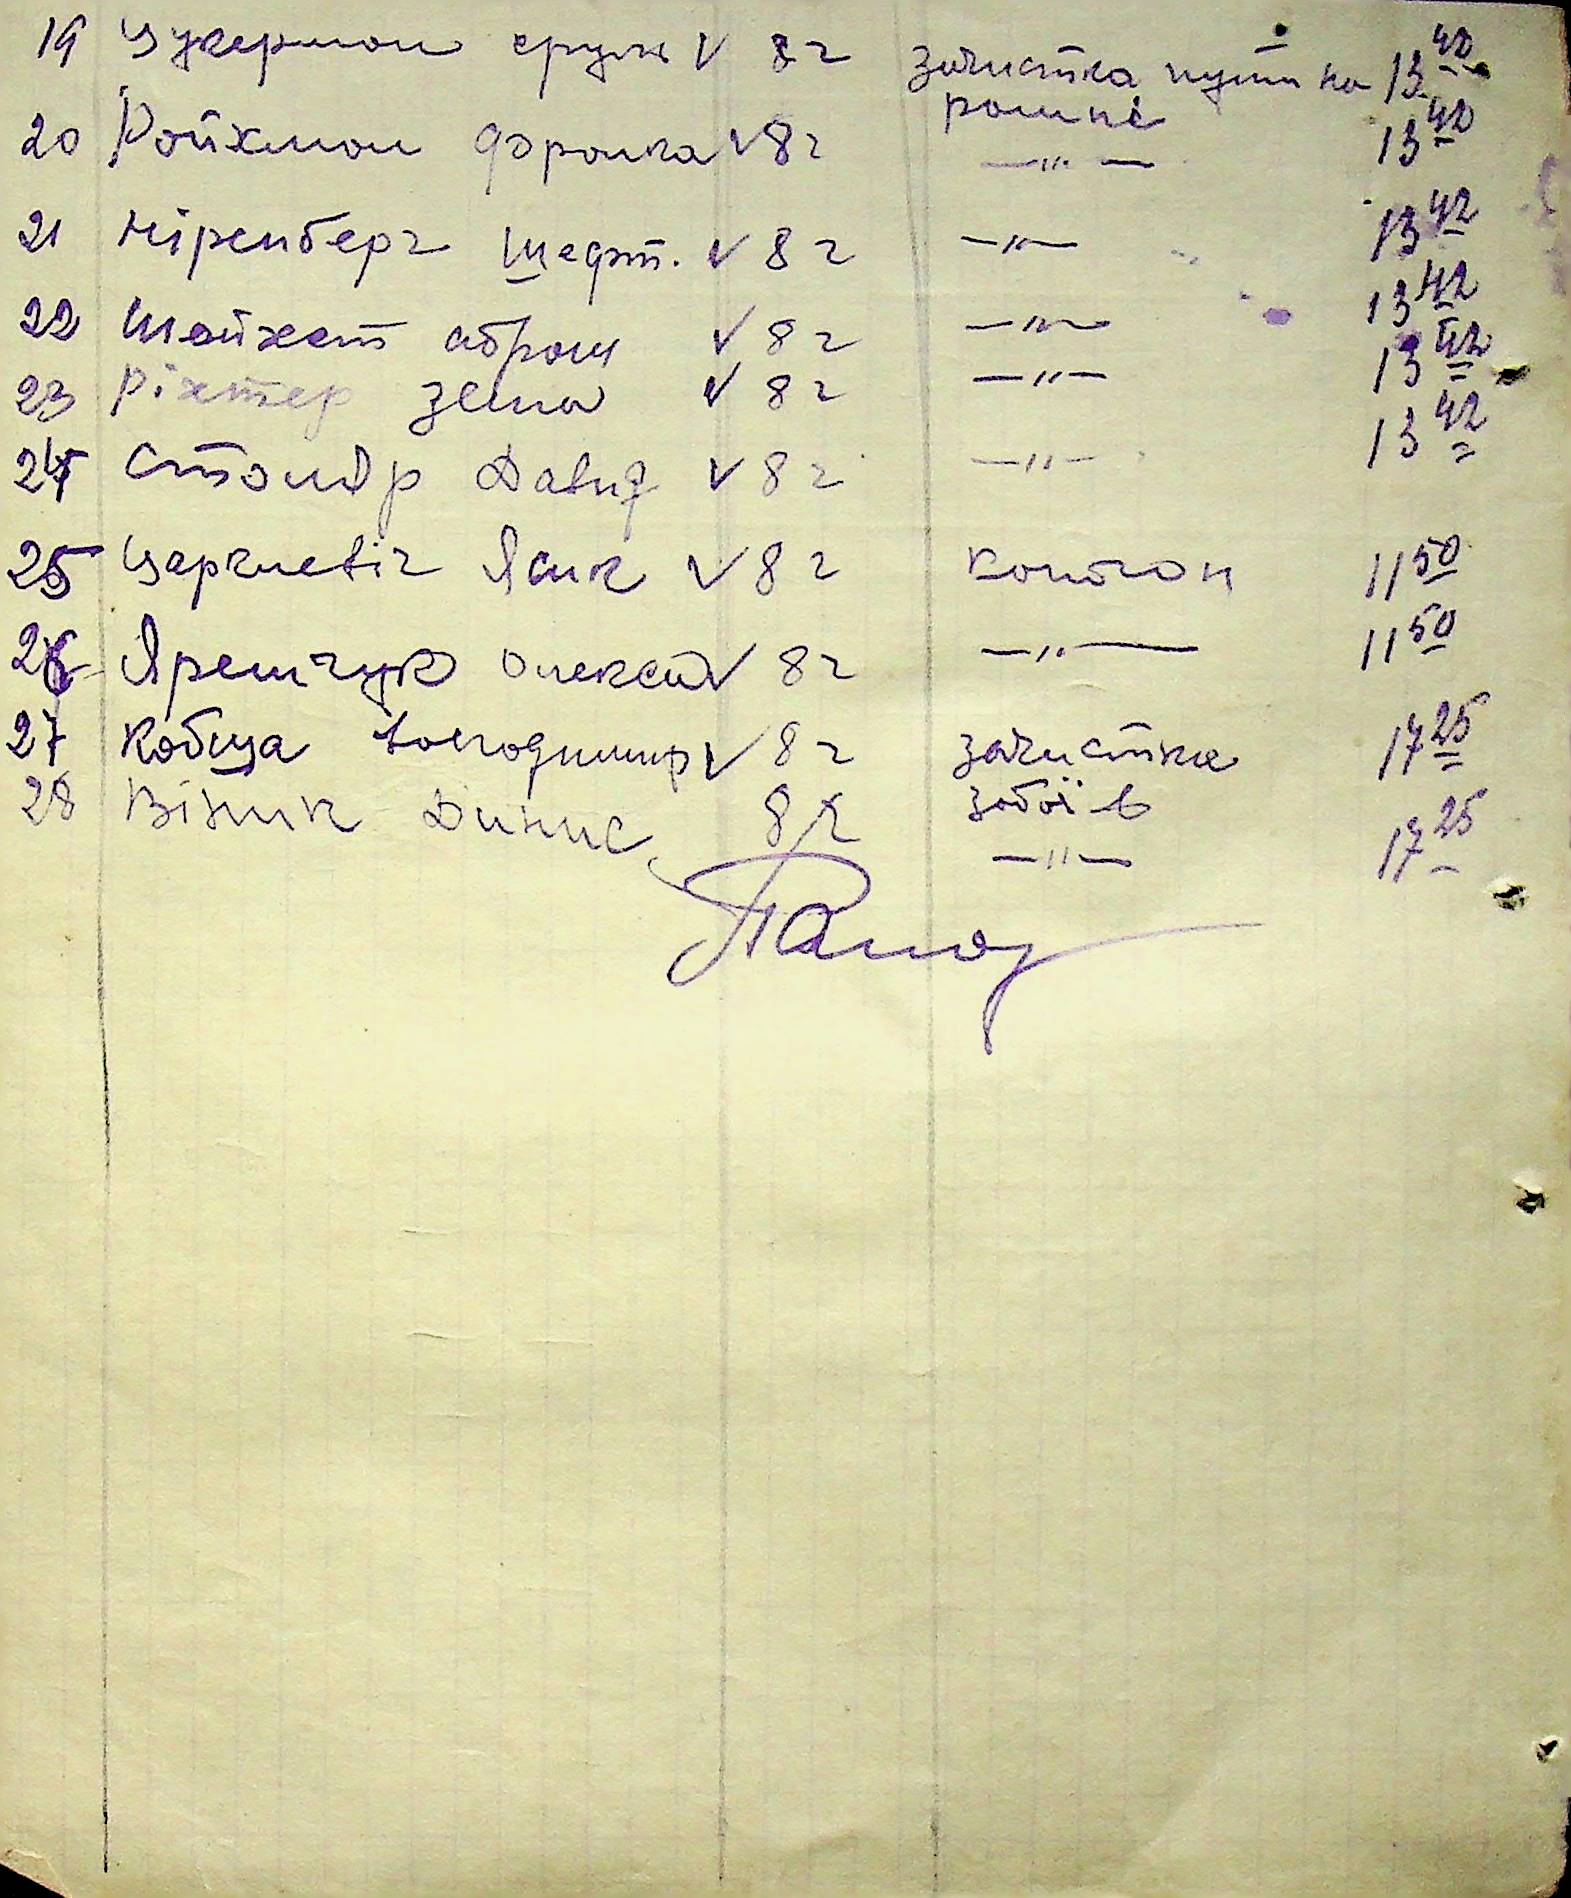 19 Цукерман сруль √ 8 г зачистка пути на 13 42
рампе
20 Ройхман Франка √ 8 г —"— 13 42
21 Ніренберг Шефт. √ 8 г —"— 13 42
22 Шойхет абрам √ 8 г —"— 13 42
23 Ріхтер Зема √ 8 г —"— 13 42
24 Столяр Давид √ 8 г —"— 13 42
25 Царкневіч Яник √ 8 г 11 50
26 Яремчук Олексій √ 8 г —"— 11 50
27 Кобица Володимир √ 8 г зачистка 17 25
забоїв
28 Віник Динис 8 г —"— 17 25